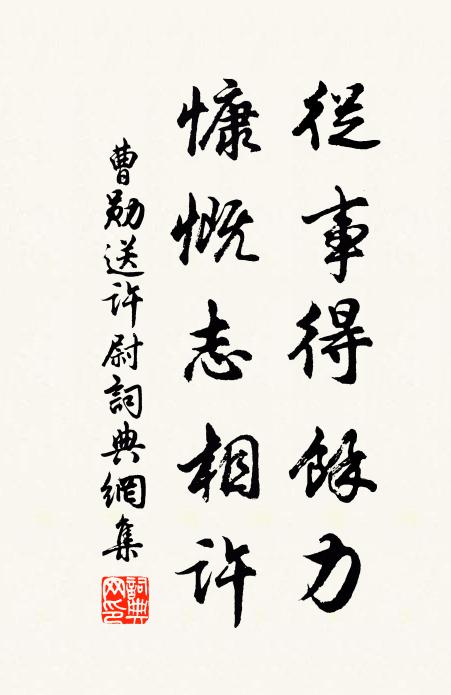 從事得餘力
慷慨志相許
曹勛送許尉詞典網集
詞典
网印